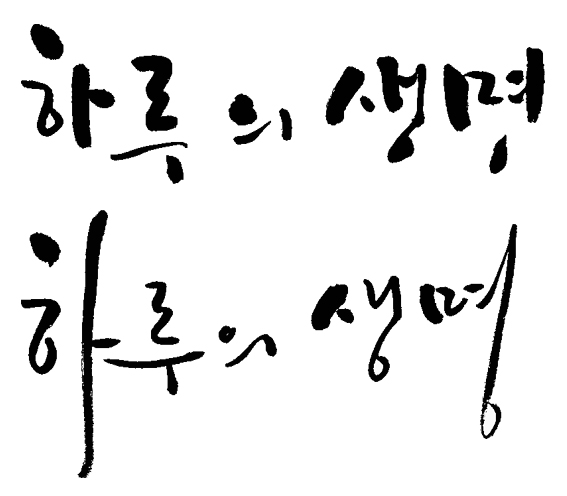 하루의 생명
하루의 생명